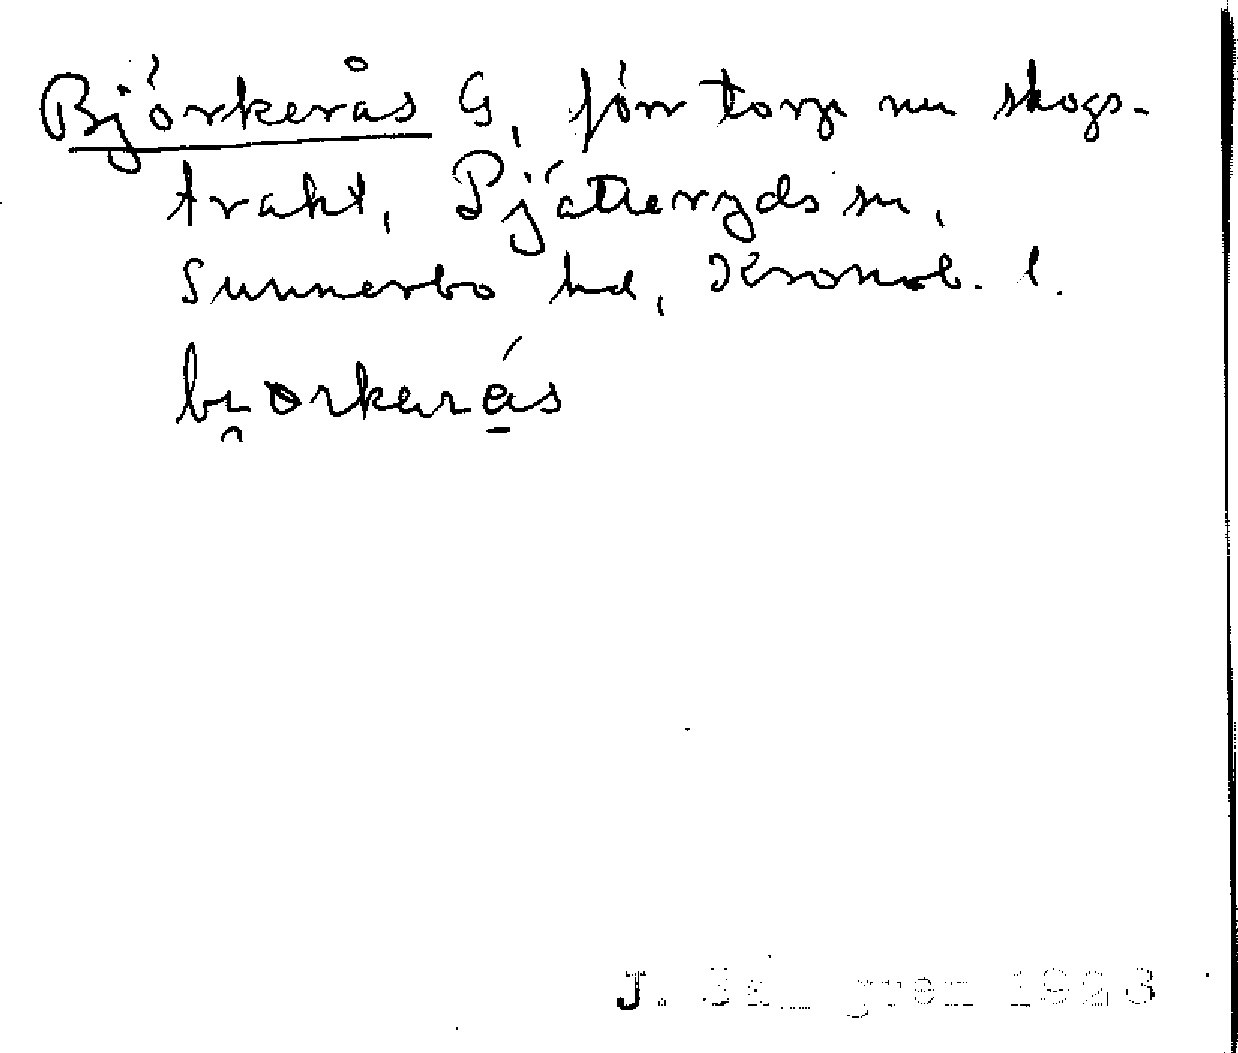 Björkerås G, förr torp nu skogs-
trakt, Pjätteryds sn,
Sunnerbo hd, Kronob. l.
J. 1923